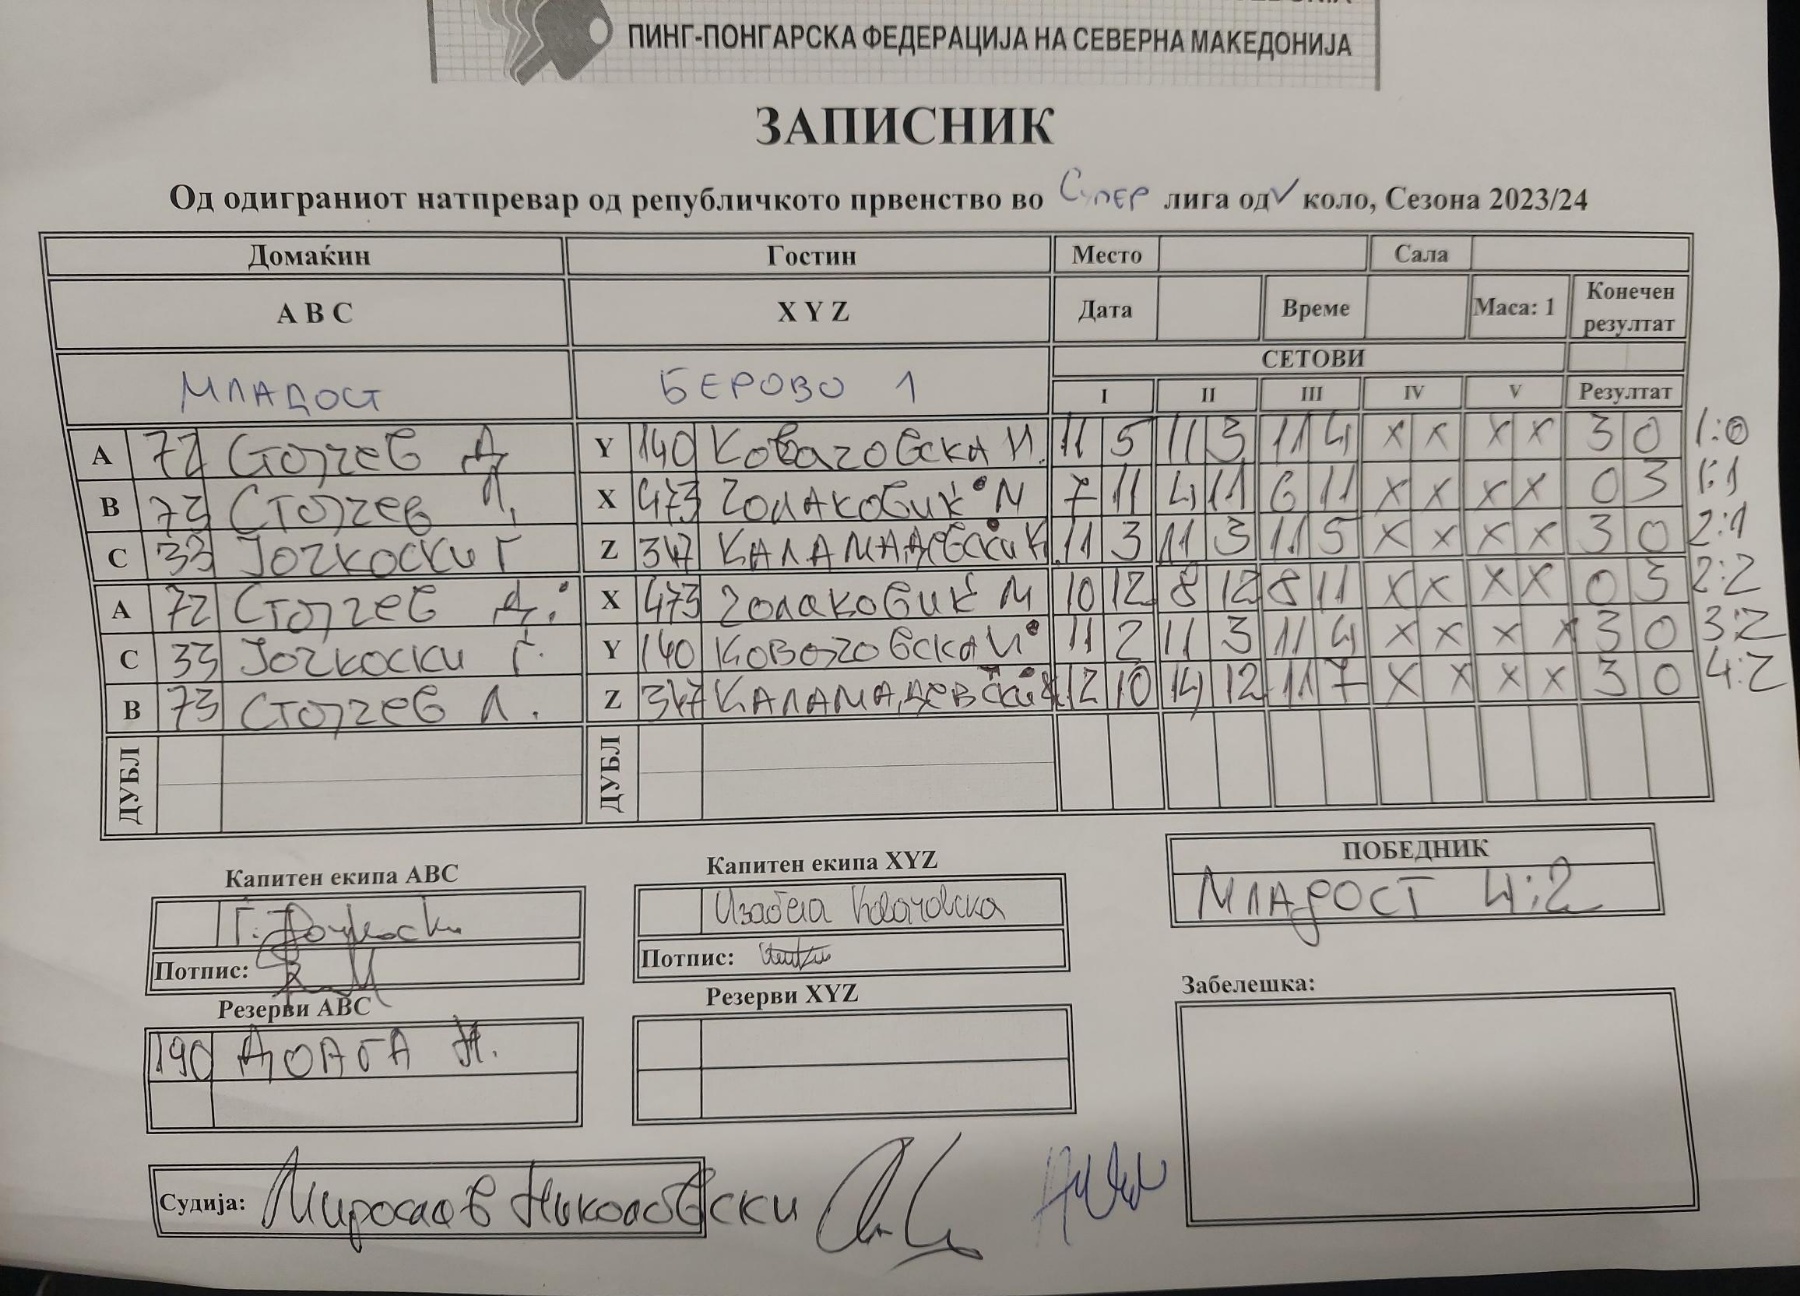 ПИНГ-ПОНГАРСКА ФЕДЕРАЦИЈА НА СЕВЕРНА МАКЕДОНИЈА
ЗАПИСНИК
Од одиграниот натпревар од републичкото првенство во СУПЕР лига од V коло, Сезона 2023/24
Домаќин Гостин Место Сала
A B C X Y Z Дата Време Маса: 1 Конечен резултат
МЛАДОСТ БЕРОВО 1 СЕТОВИ
I II III IV V Резултат
A 72 Стојчев Д Y 140 Ковачовска И. 11 5 11 3 11 4 X X X X 3 0 1:0
B 73 Стојчев Л. X 473 Голаковиќ М 7 11 4 11 6 11 X X X X 0 3 1:1
C 33 Јочкоски Г Z 347 КАЛАМАДЕВСКИ К 11 3 11 3 11 5 X X X X 3 0 2:1
A 72 Стојчев Д. X 473 Голаковиќ М 10 12 8 12 8 11 X X X X 0 3 2:2
C 33 Јочкоски Г. Y 140 Ковочовска И 11 2 11 3 11 4 X X X X 3 0 3:2
B 73 Стојчев Л. Z 347 КАЛАМАДЕВСКИ К 12 10 14 12 11 7 X X X X 3 0 4:2
ДУБЛ ДУБЛ
Капитен екипа ABC Капитен екипа XYZ ПОБЕДНИК
Г. Јочкоски Изабела Ковачовска МЛАДОСТ 4:2
Потпис: Потпис:
Резерви ABC Резерви XYZ Забелешка:
190 ДОАГА Н.
Судија: Мирослав Николовски